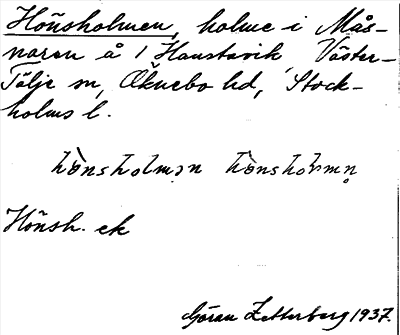 Hönsholmen, holme i Mås-
naren å 1 Hanstavik Väster-
Tälje sn, Öknebo hd, Stock-
holms l.
hònsholmən hònshoɬmn̥
Hönsh. ek
Göran Zetterberg 1937.